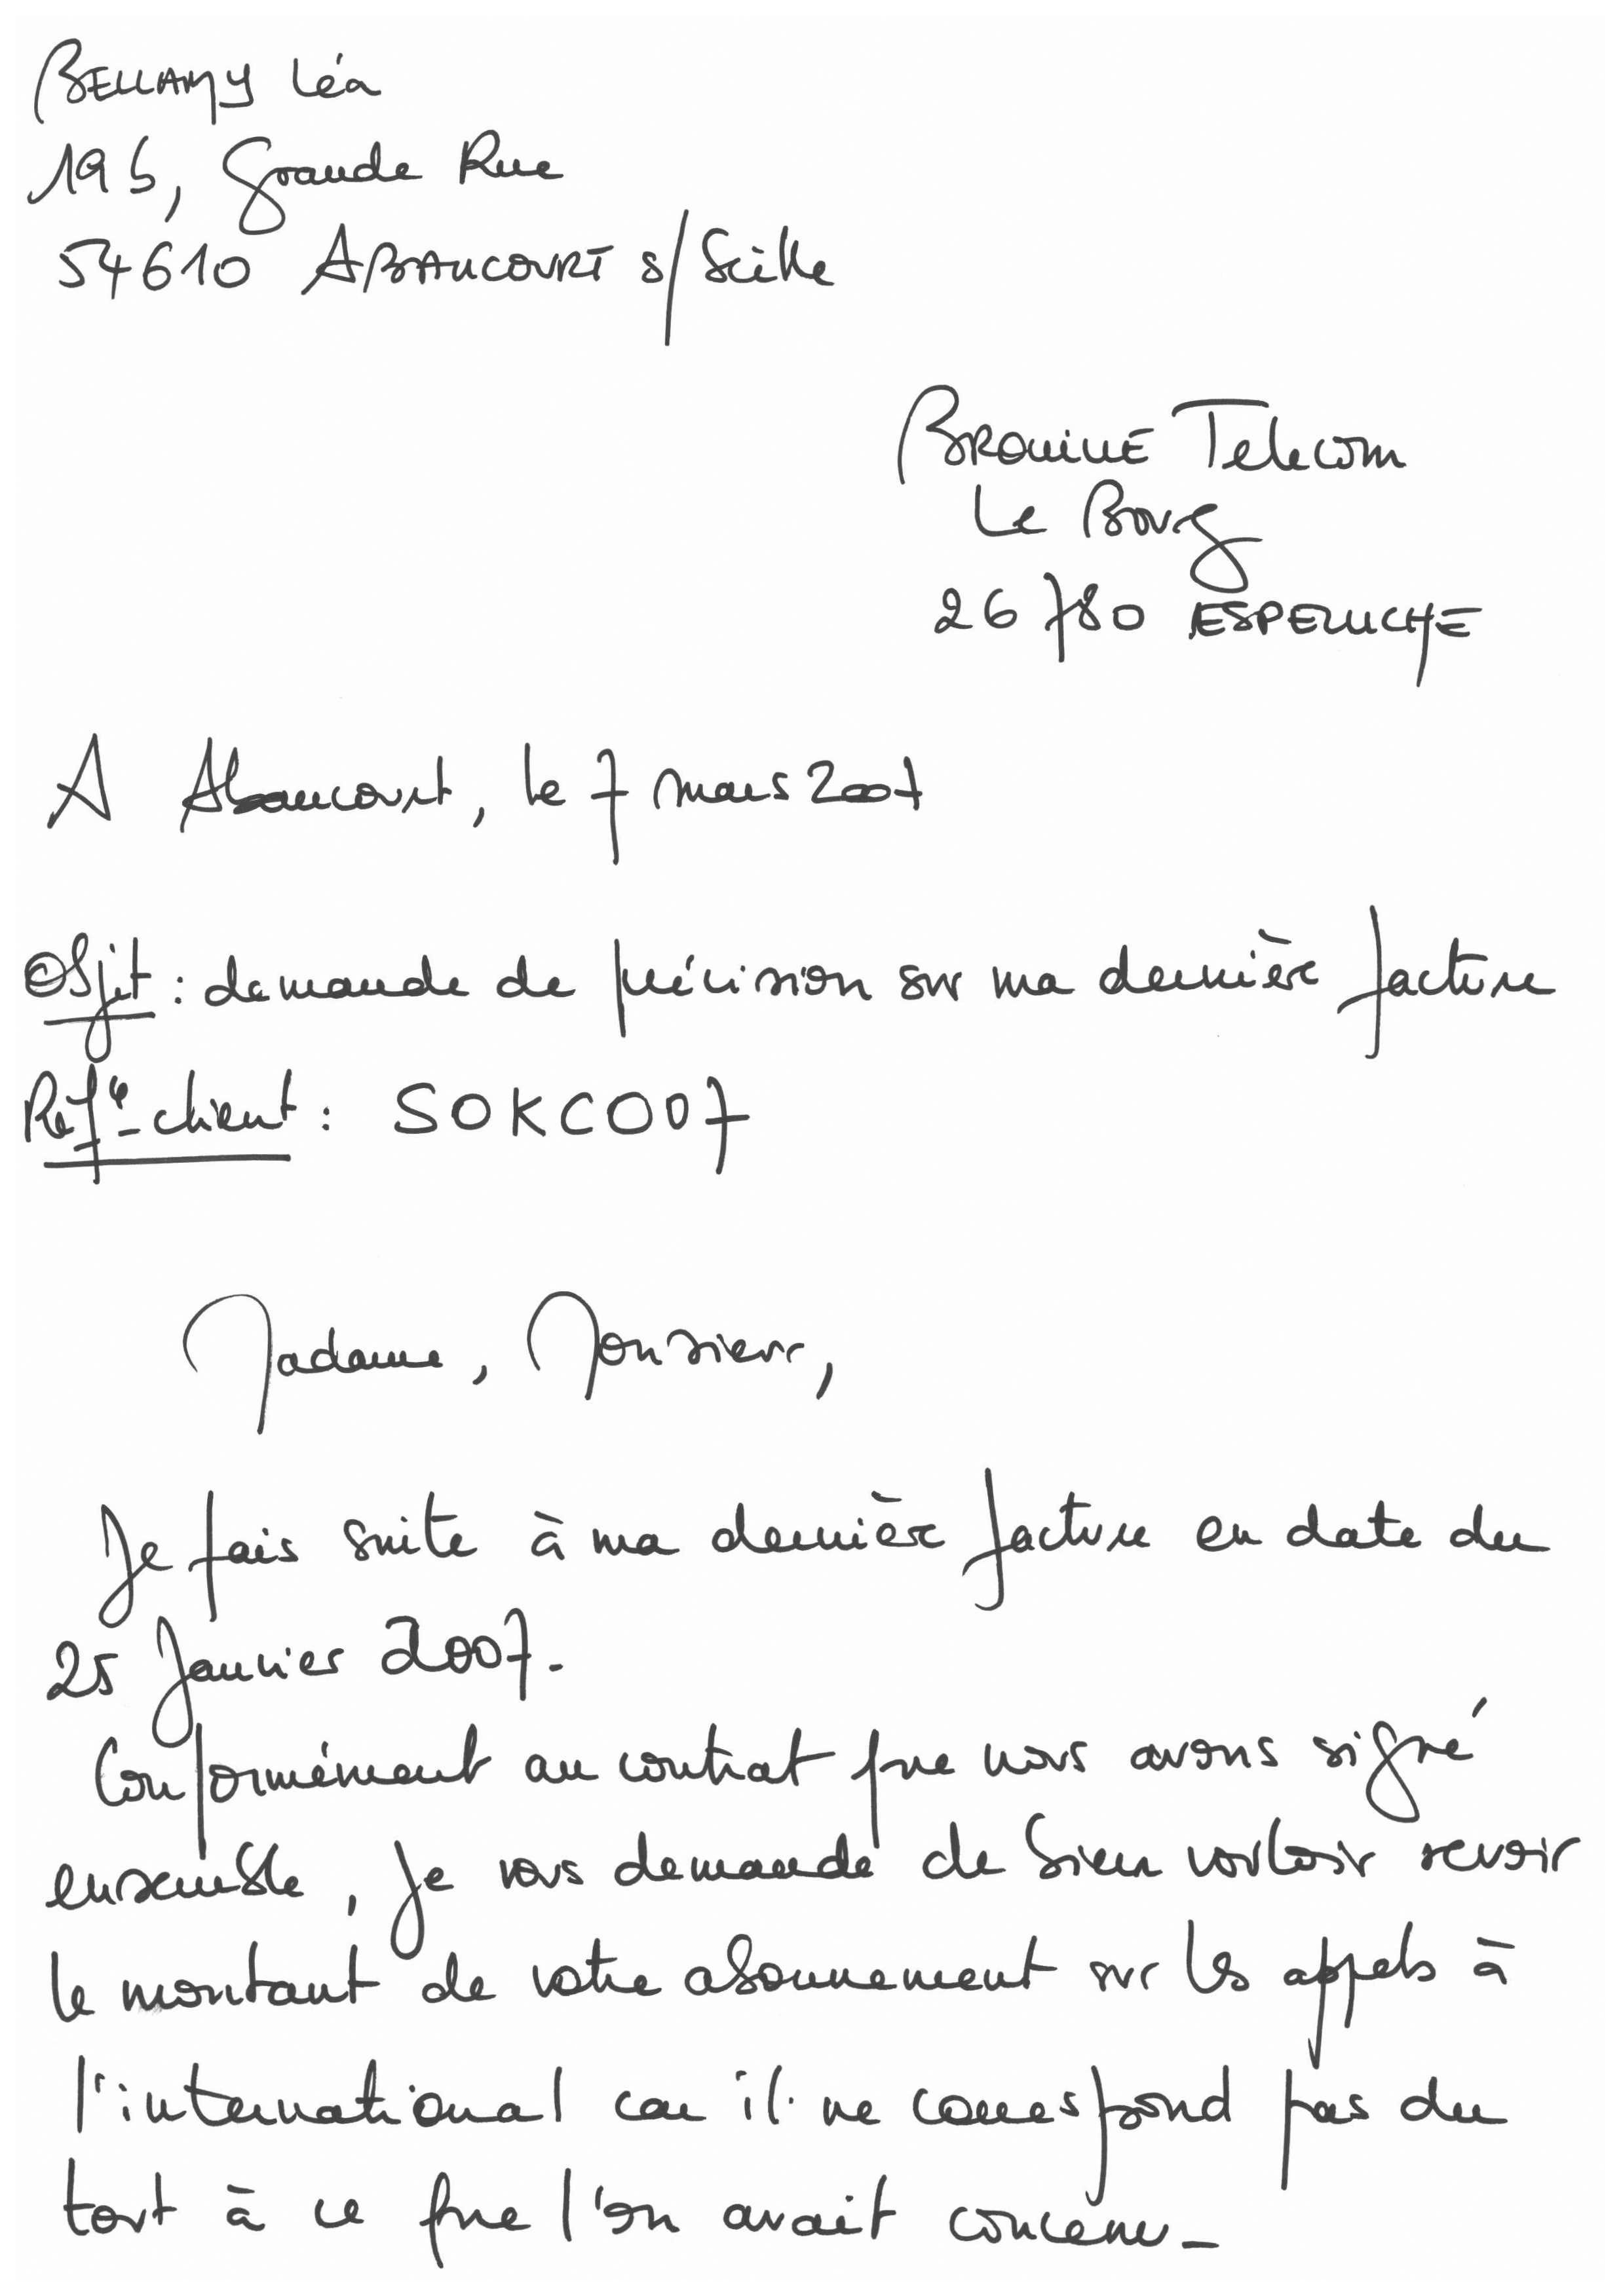 BELLAMY Léa
19 b, Grande Rue
54610 ABAUCOURT s/Seille
BROUILLE Telecom
Le Bourg
26 780 ESPELUCHE
A Abaucourt, le 7 mars 2007
Objet : demande de précision sur ma dernière facture
Refce-client : SOKCO07
Madame, Monsieur,
Je fais suite à ma dernière facture en date du
25 Janvier 2007.
Conformément au contrat que nous avons signé
ensemble, je vous demande de bien vouloir revoir
le montant de votre abonnement sur les appels à
l'international car il ne correspond pas du
tout à ce que l'on avait convenu_